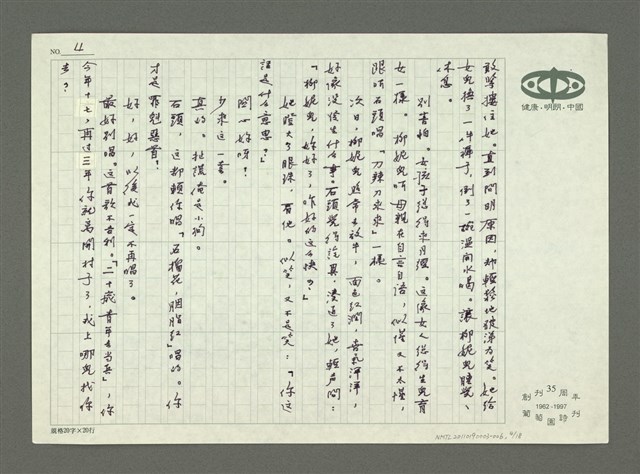 NO. 4
敢緊摟住她。直到問明原因，却輕鬆地破涕為笑。她給
女兒換了一件褲子，倒了一碗溫開水喝。讓柳妮兒睡覺、
休息。
別害怕。女孩子總得來月經。這像女人總得生兒育
女一樣。柳妮兒的母親在自言自語，似懂又不太懂，
跟聽石頭唱「刀辣刀來來」一樣。
次日，柳妮兒照常去放牛，面色紅潤，喜氣洋洋，
好像沒發生什麼事。石頭覺得詫異，湊近了她，輕声問：
「柳妮兒，妳好了，咋好的這么快？」
她瞪大了眼珠，看他。似笑，又不是笑：「你這
話是什么意思？」
關心妳呀？
少來這一套。
真的。扯謊俺是小狗。
石頭，這都賴你唱「石榴花，胭脂紅」唱的。你
才是罪魁惡首？
好，好，以後我一定不再唱了。
最好別唱。這首歌不吉利。「二十歲青年去當兵」，你
今年十七，再过三年你就离開村子了，我上哪兒找你
去？
健康．明朗．中國
創刊35周年
1962-1997
葡萄園詩刊
規格20字×20行
NMTL20110190003-006, 4/18